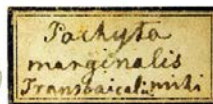 Pachyta
marginalis
Transbaical: mihi